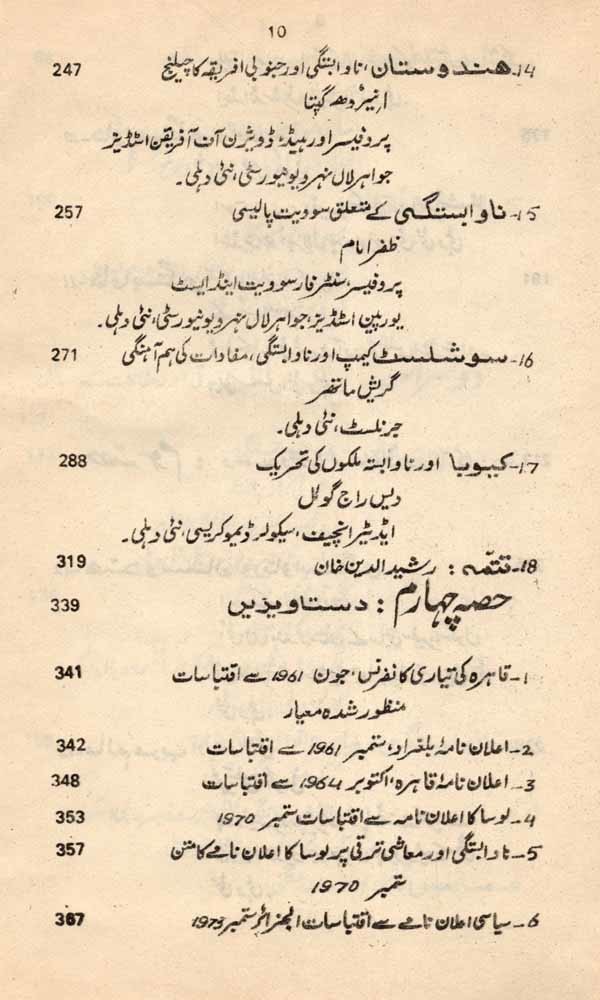 10
14۔ ھندوستان، ناوابستگی اور جنوبی افریقہ کا چیلنج 247
انیرُدھ گپتا
پروفیسر اور ہیڈ، ڈویژن آف آفریقن اسٹڈیز
جواہر لال نہرو یونیورسٹی، نئی دہلی۔
15۔ ناوابستگی کے متعلق سوویت پالیسی 257
ظفر امام
پروفیسر، سنٹر فار سوویت اینڈ ایسٹ
یورپین اسٹڈیز، جواہر لال نہرو یونیورسٹی، نئی دہلی۔
16۔ سوشلسٹ کیمپ اور ناوابستگی، مفادات کی ہم آہنگی 271
گریش ماتھر
جرنلسٹ، نئی دہلی۔
17۔ کیوبا اور ناوابستہ ملکوں کی تحریک 288
دیس راج گوئل
ایڈیٹر انچیف، سیکولر ڈیموکریسی، نئی دہلی۔
18۔ تتمّہ : رشید الدین خان 319
حصہ چہارم : دستاویزیں 339
1۔ قاہرہ کی تیاری کانفرنس، جون 1961 سے اقتباسات 341
منظور شدہ معیار
2۔ اعلان نامۂ بلغراد، ستمبر 1961 سے اقتباسات 342
3۔ اعلان نامۂ قاہرہ، اکتوبر 1964 سے اقتباسات 348
4۔ لوساکا اعلان نامہ سے اقتباسات ستمبر 1970 353
5۔ ناوابستگی اور معاشی ترقی پر لوساکا اعلان نامے کا متن 357
ستمبر 1970
6۔ سیاسی اعلان نامے سے اقتباسات الجزائر ستمبر 1973 367